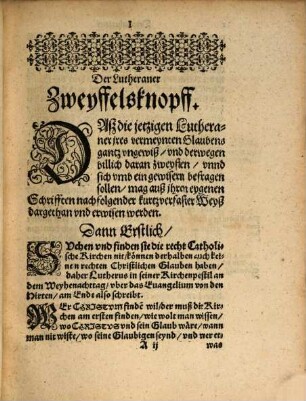 1
Der Lutheraner
Zweyffelsknopff.
DAſz die jetzigen Luthera-
ner jres vermeynten Glaubens
gantz vngewiß / vnd derwegen
billich daran zweyflen / vnnd
ſich vmb ein gewiſern befragen
ſollen / mag auß jhren eygenen
Schrifften nachfolgender kurtzverfaſter Weyß
dargethan vnd erwiſen werden.
Dann Erſtlich /
SUchen vnd finden ſie die recht Catholi-
ſche Kirchen nit / können derhalben auch kei-
nen rechten Chriſtlichen Glauben haben /
daher Lutherus in ſeiner Kirchenpoſtil an
dem Weyhenachttag / vber das Euangelium von den
Hirten / am Ende alſo ſchreibt.
WEr CHRISTVM findē wil / der muß die Kir-
chen am erſten finden / wie wolt man wiſſen /
wo CHRISTVS vnd ſein Glaub wäre / wann
man nit wiſte / wo ſeine Glaubigen ſeynd / vnd wer et-
A ij
was